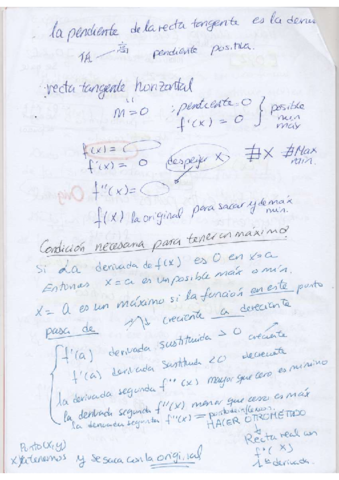 la pendiente de la recta tangente es la deriv
pendiente positiva.
recta tangente horizontal
m=0 : pendiente 0 } posible
f'(x) = 0 min
máx
f(x) =
f'(x) = 0 despejar x ∄x ∄Max
min.
f''(x) =
f(x) la original para sacar y de máx
min.
Condición necesaria para tener un máximo?
Si La derivada de f(x) es 0 en x=a
Entonces x=a es un posible máx o mín.
x = a es un máximo si la función en este punto
pasa de creciente a decreciente
f'(a) derivada sustituida > 0 creciente
f'(a) derivada sustituida < 0 decreciente
la derivada segunda f''(x) mayor que cero es mínimo
la derivada segunda f''(x) menor que cero es máx
la derivada segunda f''(x) =
HACER OTRO METODO
Punto (x,y)
x la tenemos y se saca con la original
Recta real con
f'(x)
1ª derivada.